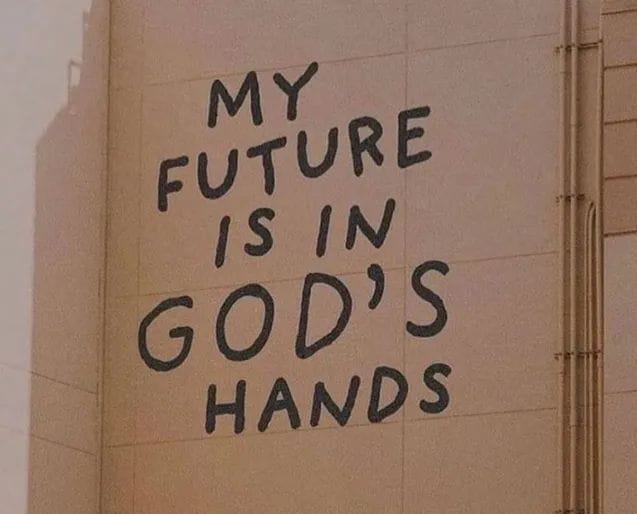 MY
FUTURE
IS IN
GOD'S
HANDS